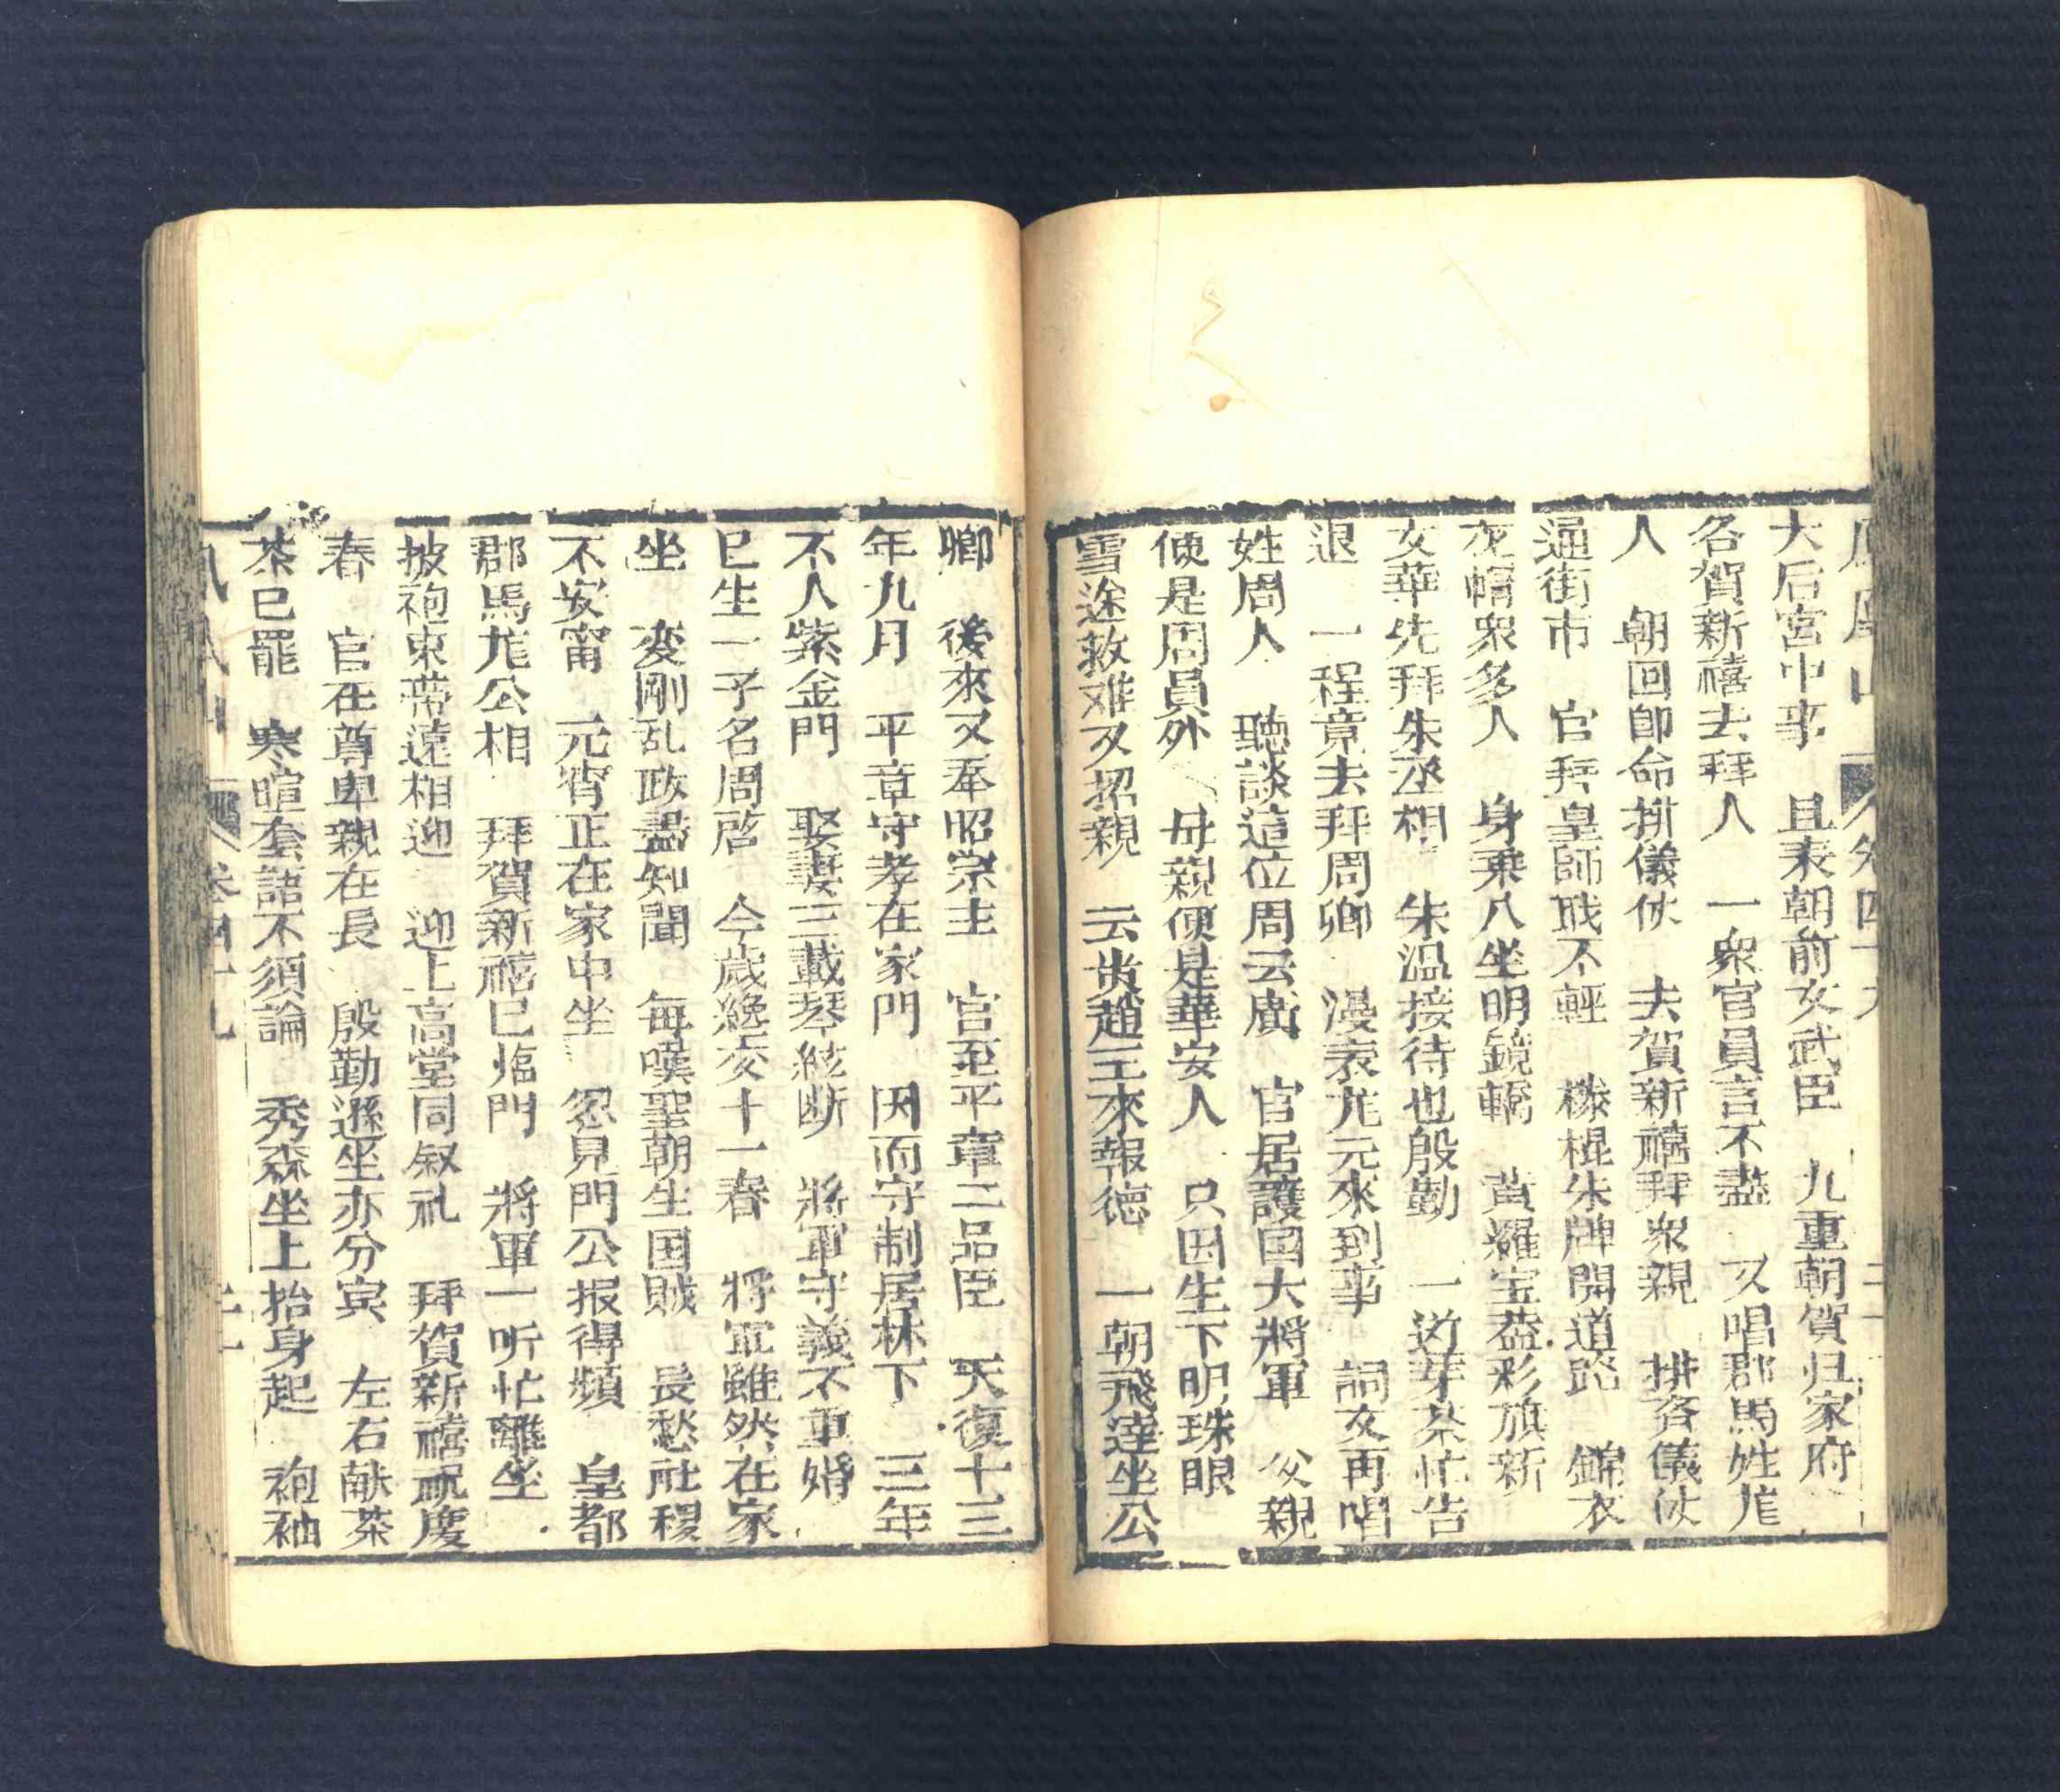 大后宮中事　且表朝前文武臣　九重朝賀归家府
各賀新禧去拜人　一衆官員言不盡　又唱郡馬姓尨
人　朝回即命排儀仗　去賀新禧拜衆親　排齐儀仗
通街市　官拜皇師戝不輕　棍朱牌開道路　錦衣
花帽衆多人　身乗八坐明鏡轎　黄羅宝盖彩旗新
文華先拜朱丞相　朱温接待也殷勤　一盞芽茶忙告
退　一程竟去拜周卿　漫表尨元來到事　詞文再唱
姓周人　聴談這位周云廣　官居護国大將軍　父親
便是周員外　母親便是華安人　只因生下明珠眼
雪途救难又招親　云贵趙王來報德　一朝飛達坐公
卿　後來又奉昭宗主　官至平章二品臣　天復十三
年九月　平章守孝在家門　因而守制居林下　三年
不入紫金門　娶妻三載琴絃断　將軍守義不重婚
已生一子名周啓　今歲纔交十一春　將軍雖然在家
坐　変剛乱政盡知聞　每嘆聖朝生国賊　長愁社稷
不安甯　元宵正在家中坐　忽見門公报得頻　皇都
郡馬尨公相　拜賀新禧已临門　將軍一听忙離坐
披袍束帶遠相迎　迎上高堂同叙礼　拜賀新禧祝慶
春　官在尊卑親在長　殷勤遜坐亦分宾　左右献茶
茶已罷　寒暄套語不須論　秀森坐上抬身起　袍袖
卷四十九